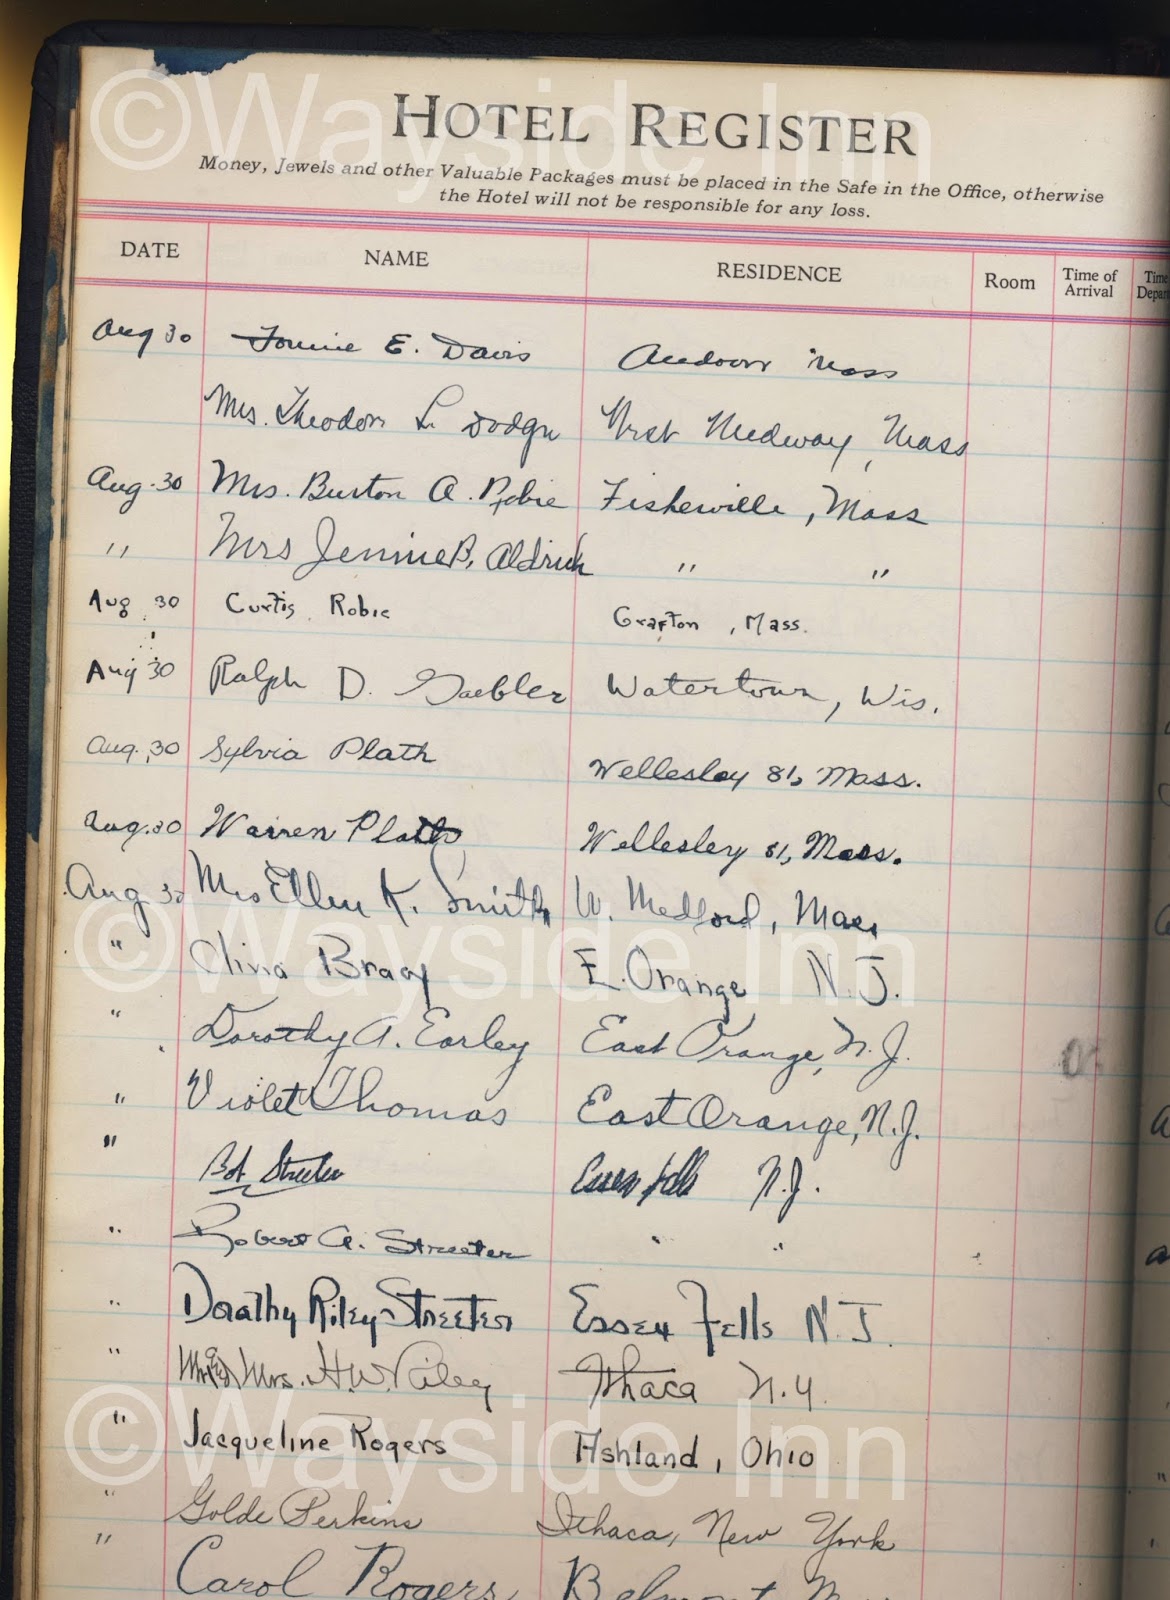 ©Wayside Inn
HOTEL REGISTER
Money, Jewels and other Valuable Packages must be placed in the Safe in the Office, otherwise
the Hotel will not be responsible for any loss.
DATE NAME RESIDENCE Room Time of Arrival Time
Aug 30 E. Davis Andover Mass
Mrs. Theodore L. Dodge West Medway, Mass
Aug. 30 Mrs. Burton A. Robie Fisherville, Mass
" Mrs Jennie B. Aldrich " "
Aug 30 Curtis Robie Grafton, Mass.
Aug 30 Ralph D. Gaebler Watertown, Wis.
Aug. 30 Sylvia Plath Wellesley 81, Mass.
Aug. 30 Warren Plath Wellesley 81, Mass.
Aug 30 Mrs Ellen K. Smith W. Medford, Mass
©Wayside Inn
" Olivia Brady E. Orange N.J.
" Dorothy A. Earley East Orange, N.J.
" Violet Thomas East Orange, N.J.
" Bob Streeter Essex Fells N.J.
" Robert A. Streeter " "
" Dorothy Riley Streeter Essex Fells N.J.
" Mr & Mrs. H.W. Riley Ithaca N.Y.
©Wayside Inn
" Jacqueline Rogers Ashland, Ohio
" Golde Perkins Ithaca, New York
" Carol Rogers Belmont